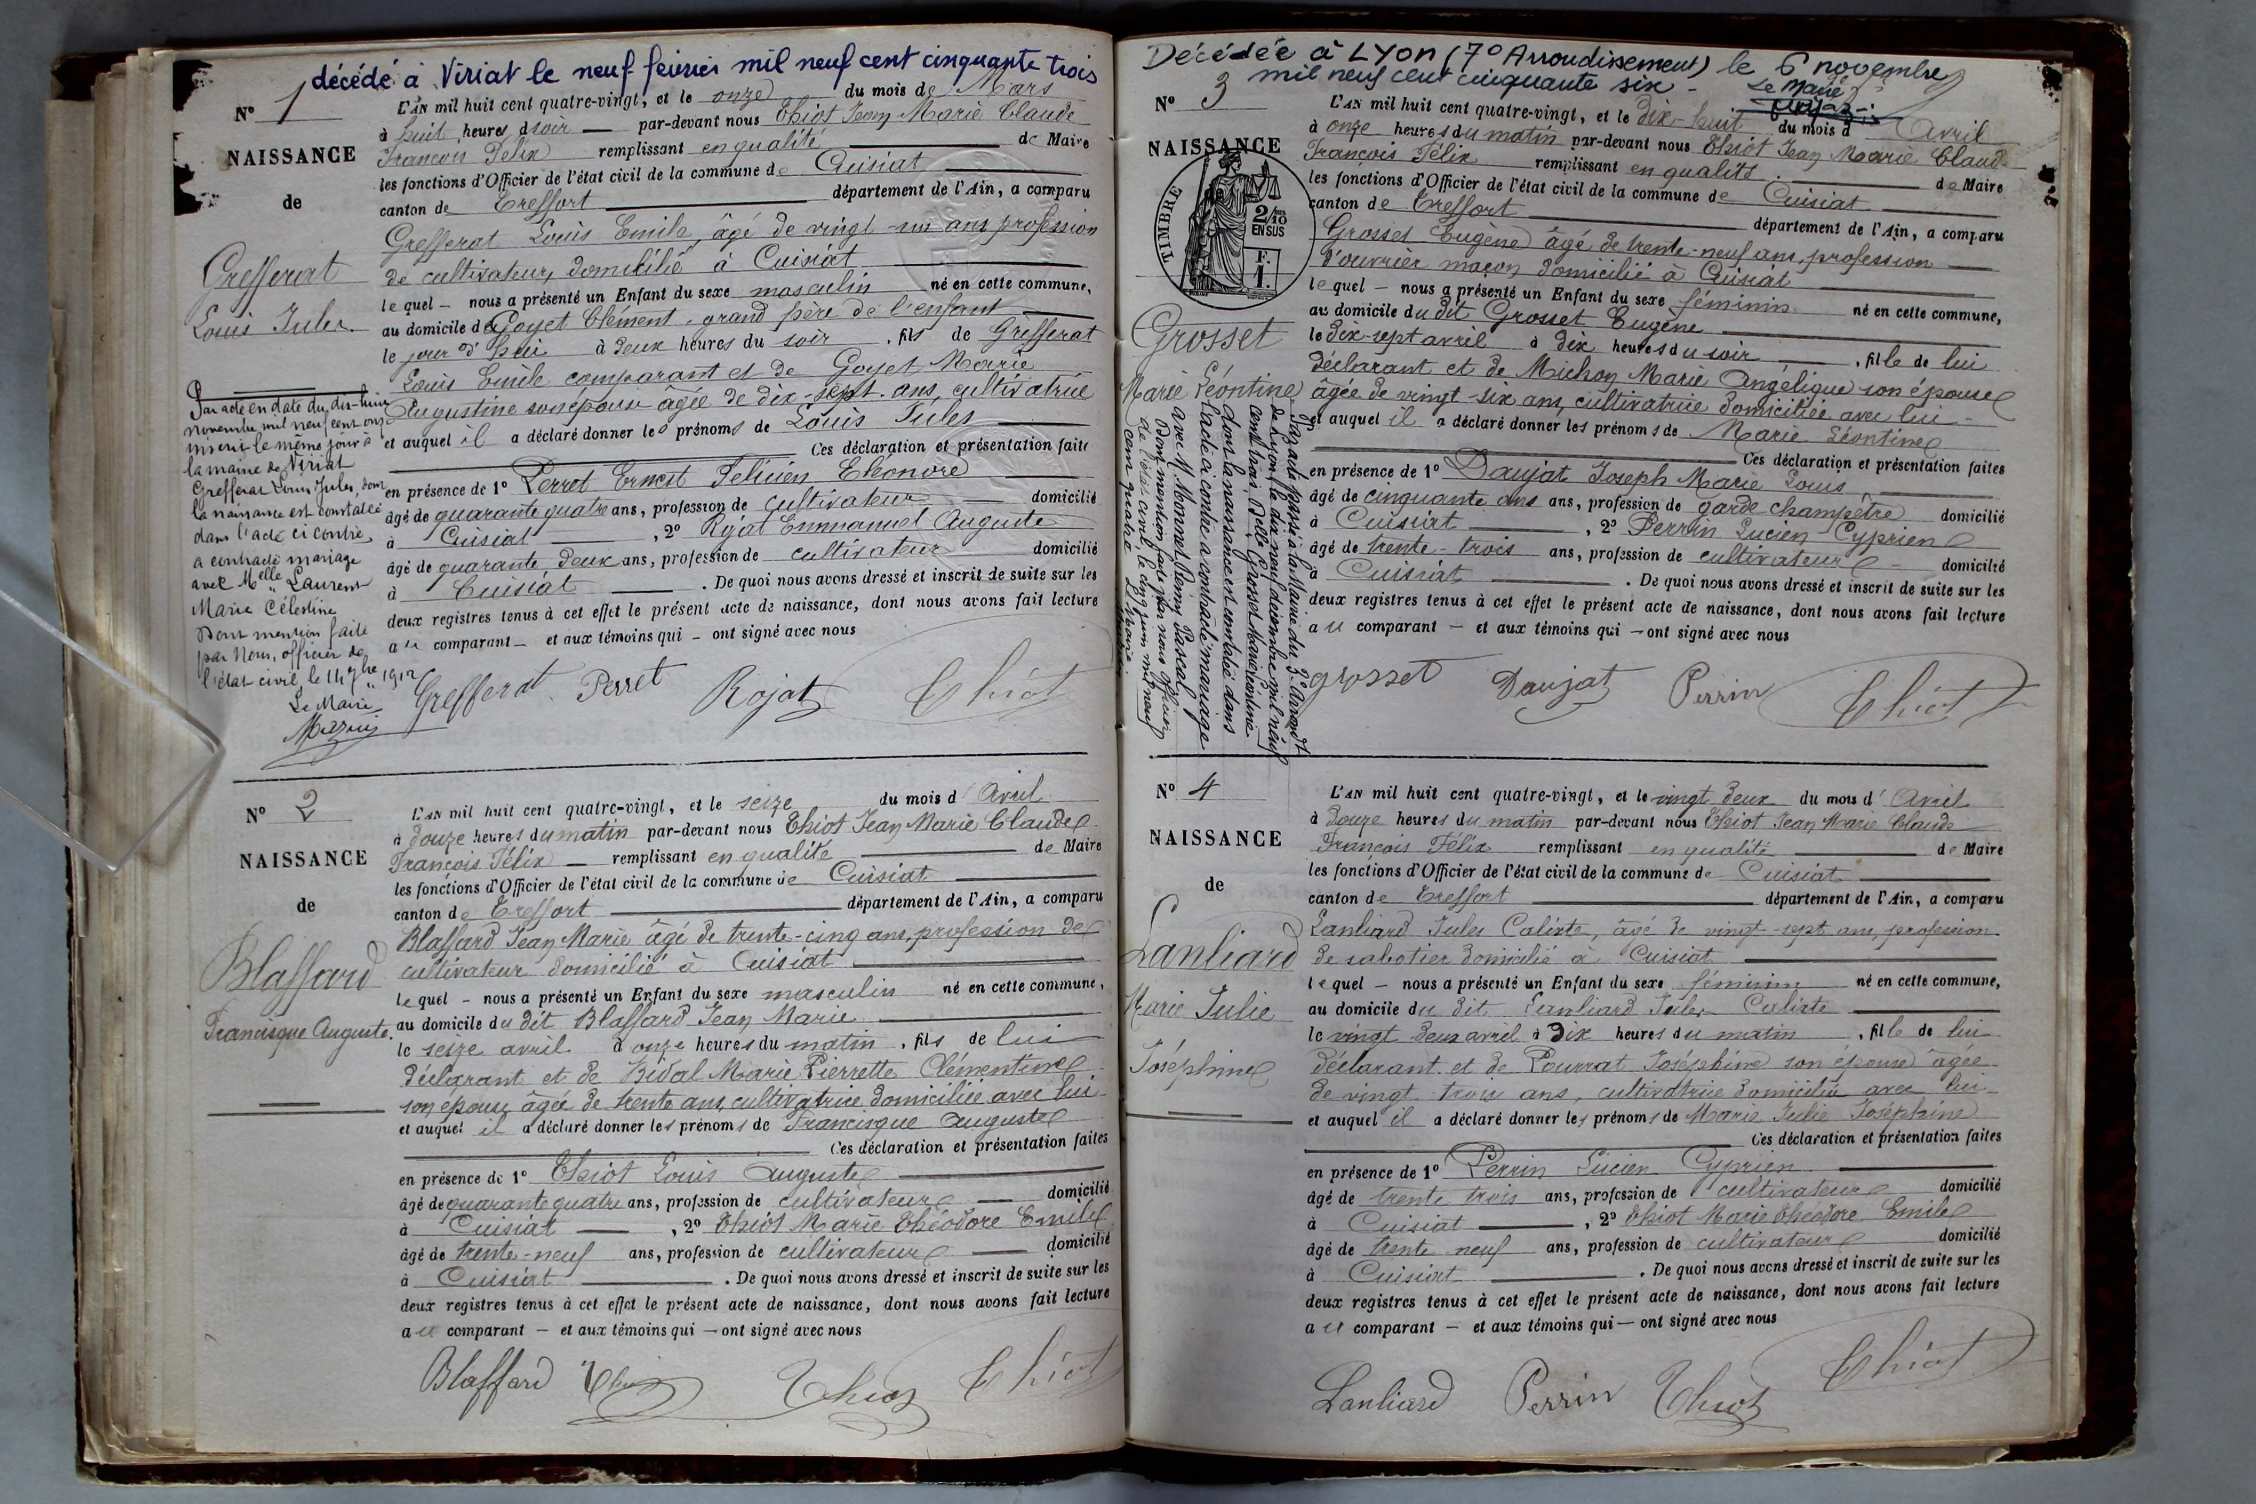 décédé à Viriat le neuf février mil neuf cent cinquante trois
N° 1
NAISSANCE
de
Grefferat
Louis Jules.
L'AN mil huit cent quatre-vingt, et le onze du mois de Mars
à huit heures d soir par-devant nous Thiot Jean Marie Claude
François Félix remplissant en qualité de Maire
les fonctions d'Officier de l'état civil de la commune de Cuisiat
canton de Treffort département de l'Ain, a comparu
Grefferat Louis Emile âgé de vingt-un ans profession
de cultivateur, domicilié à Cuisiat
le quel – nous a présenté un Enfant du sexe masculin né en cette commune,
au domicile de Goyet Clément, grand père de l'enfant
le jour d'hui à deux heures du soir, fils de Grefferat
Louis Emile comparant et de Goyet Marie
Augustine son épouse âgée de dix-sept ans, cultivatrice
et auquel il a déclaré donner les prénoms de Louis Jules
Ces déclaration et présentation faite
en présence de 1° Perret Ernest Félicien Eléonore
âgé de quarante quatre ans, profession de cultivateur domicilié
à Cuisiat, 2° Rojat Emmanuel Auguste
âgé de quarante deux ans, profession de cultivateur domicilié
à Cuisiat. De quoi nous avons dressé et inscrit de suite sur les
deux registres tenus à cet effet le présent acte de naissance, dont nous avons fait lecture
au comparant – et aux témoins qui – ont signé avec nous
Grefferat Perret Rojat Thiot
Par acte en date du dix-huit
novembre mil neuf cent onze
inscrit le même jour à
la mairie de Viriat
Grefferat Louis Jules, dont
la naissance est constatée
dans l'acte ci contre,
a contracté mariage
avec Melle Laurent
Marie Célestine
Dont mention faite
par Nous, officier de
l'état civil, le 14 7bre 1912
Le Maire
N° 2
NAISSANCE
de
Blaffard
Francisque Auguste.
L'AN mil huit cent quatre-vingt, et le seize du mois d'Avril
à douze heures du matin par-devant nous Thiot Jean Marie Claude
François Félix – remplissant en qualité de Maire
les fonctions d'Officier de l'état civil de la commune de Cuisiat
canton de Treffort département de l'Ain, a comparu
Blaffard Jean Marie âgé de trente-cinq ans, profession de
cultivateur domicilié à Cuisiat
le quel – nous a présenté un Enfant du sexe masculin né en cette commune,
au domicile du dit Blaffard Jean Marie
le seize avril à onze heures du matin, fils de lui
déclarant et de Bidal Marie Pierrette Clémentine
son épouse âgée de trente ans, cultivatrice domiciliée avec lui
et auquel il a déclaré donner les prénoms de Francisque Auguste
Ces déclaration et présentation faites
en présence de 1° Thiot Louis Auguste
âgé de quarante quatre ans, profession de cultivateur domicilié
à Cuisiat, 2° Thiot Marie Théodore Emile
âgé de trente-neuf ans, profession de cultivateur domicilié
à Cuisiat. De quoi nous avons dressé et inscrit de suite sur les
deux registres tenus à cet effet le présent acte de naissance, dont nous avons fait lecture
au comparant – et aux témoins qui – ont signé avec nous
Blaffard Thiot Thiot Thiot
Décédée à LYON (7° Arrondissement) le 6 novembre
mil neuf cent cinquante six –
Le Maire
N° 3
NAISSANCE
de
TIMBRE
2/10
EN SUS
F.
1.
Grosset
Marie Léontine
L'AN mil huit cent quatre-vingt, et le dix-huit du mois d'Avril
à onze heures du matin par-devant nous Thiot Jean Marie Claude
François Félix remplissant en qualité de Maire
les fonctions d'Officier de l'état civil de la commune de Cuisiat
canton de Treffort département de l'Ain, a comparu
Grosset Eugène âgé de trente-neuf ans, profession
d'ouvrier maçon domicilié à Cuisiat
le quel – nous a présenté un Enfant du sexe féminin né en cette commune,
au domicile du dit Grosset Eugène
le dix-sept avril à dix heures du soir, fille de lui
déclarant et de Michon Marie Angélique son épouse
âgée de vingt-six ans, cultivatrice domiciliée avec lui
et auquel il a déclaré donner les prénoms de Marie Léontine
Ces déclaration et présentation faites
en présence de 1° Daujat Joseph Marie Louis
âgé de cinquante ans ans, profession de garde champêtre domicilié
à Cuisiat, 2° Perrin Lucien Cyprien
âgé de trente-trois ans, profession de cultivateur domicilié
à Cuisiat. De quoi nous avons dressé et inscrit de suite sur les
deux registres tenus à cet effet le présent acte de naissance, dont nous avons fait lecture
au comparant – et aux témoins qui – ont signé avec nous
grosset Daujat Perrin Thiot
Par acte passé à la Mairie du 3e Arrondt
de Lyon, le dix neuf décembre mil neuf
cent trois, Delle Grosset Marie Léontine
dont la naissance est constatée dans
l'acte ci contre a contracté mariage
avec M. Monnet Rémy Pascal
Dont mention faite par nous officier
de l'état civil, le cinq juin mil neuf
cent quatre Le Maire
N° 4
NAISSANCE
de
Lanliard
Marie Julie
Joséphine
L'AN mil huit cent quatre-vingt, et le vingt deux du mois d'Avril
à douze heures du matin par-devant nous Thiot Jean Marie Claude
François Félix remplissant en qualité de Maire
les fonctions d'Officier de l'état civil de la commune de Cuisiat
canton de Treffort département de l'Ain, a comparu
Lanliard Jules Calixte, âgé de vingt-sept ans, profession
de sabotier domicilié à Cuisiat
le quel – nous a présenté un Enfant du sexe féminin né en cette commune,
au domicile du dit Lanliard Jules Calixte
le vingt deux avril à dix heures du matin, fille de lui
déclarant et de Pourrat Joséphine son épouse âgée
de vingt trois ans, cultivatrice domiciliée avec lui
et auquel il a déclaré donner les prénoms de Marie Julie Joséphine
Ces déclaration et présentation faites
en présence de 1° Perrin Lucien Cyprien
âgé de trente trois ans, profession de cultivateur domicilié
à Cuisiat, 2° Thiot Marie Théodore Emile
âgé de trente neuf ans, profession de cultivateur domicilié
à Cuisiat. De quoi nous avons dressé et inscrit de suite sur les
deux registres tenus à cet effet le présent acte de naissance, dont nous avons fait lecture
au comparant – et aux témoins qui – ont signé avec nous
Lanliard Perrin Thiot Thiot